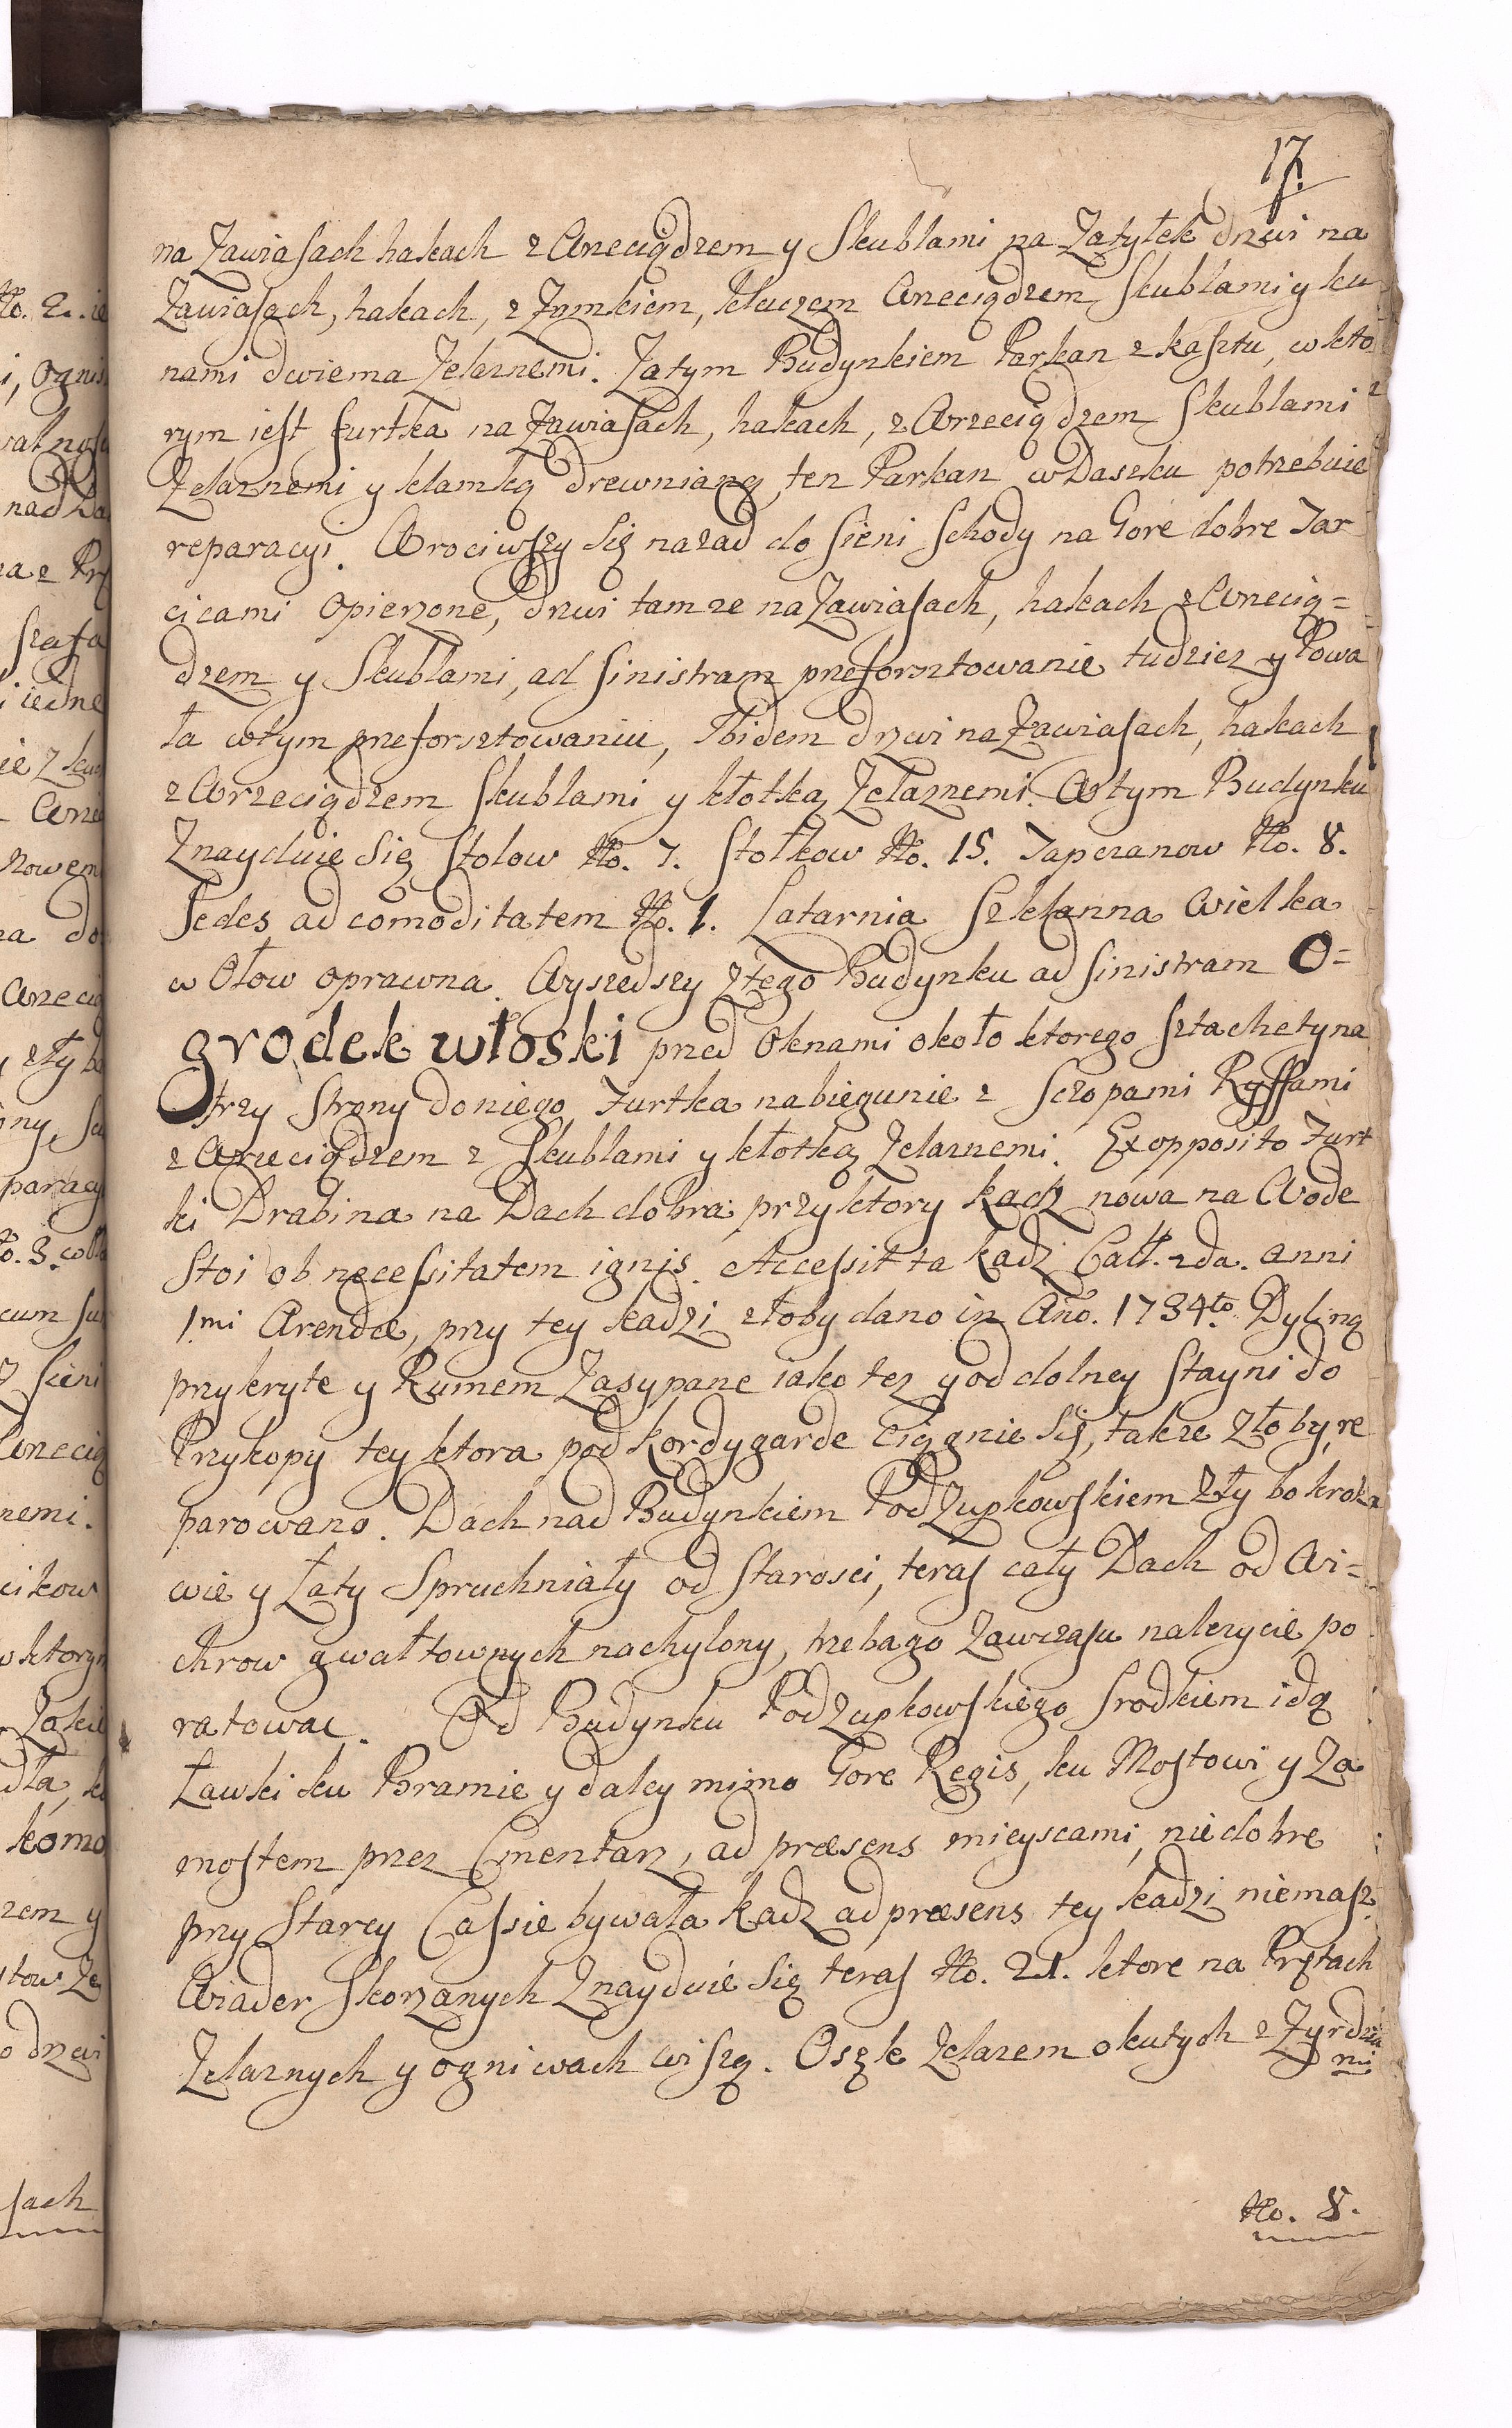 17.
na Zawiasach hakach z Wrzeciądzem y Skublami na Zatyłek drzwi na
Zawiasach, hakach, z Zamkiem, kluczem Wrzeciądzem, Skublami y ku
nami dwiema Zelaznemi. Zatym Budynkiem Parkan z kasztu, w kto
rym iest furtka na Zawiasach, hakach, z Wrzeciądzem Skublami
Zelaznemi y klamką drewnianą, ten Parkan w Daszku potrzebuie
reparacyi. Wrociwszy Się nazad do Sieni Schody na Gore dobre Tar
cicami Opierzone, drzwi tamze na Zawiasach, hakach z Wrzecią=
dzem y Skublami, ad Sinistram przeforsztowanie tudziez y Powa
ła w tym przeforsztowaniu, Ibidem drzwi na Zawiasach, hakach
z Wrzeciądzem Skublami y kłotką Zelaznemi. W tym Budynku
Znayduie Się Stolow No. 7. Stołkow No. 15. Tapczanow No. 8.
Sedes ad comoditatem No. 1. Latarnia Szklanna Wielka
w Ołow oprawna. Wyszedszy z tego Budynku ad Sinistram O=
grodek włoski przed Oknami około ktorego Sztachety na
trzy Strony do niego Furtka na biegunie z Sczopami Ryffami
z Wrzeciądzem z Skublami y kłotką Zelaznemi. Ex opposito Furt
ki Drabina na Dach dobra, przy ktory kadz nowa na Wode
Stoi ob necessitatem ignis. Accessit ta kadz Catt. 2da. anni
1mi Arendæ, przy tey kadzi złoby dano in Ano. 1734to. Dyliną
przykryte y Rumem Zasypane iako tez y od dolney Stayni do
Przykopy tey ktora pod kordygarde ciągnie Się, takze Złoby, re
parowano. Dach nad Budynkiem PodZupkowskiem Zły bo krok
wie y Łaty Spruchniały od Starosci, teras cały Dach od Wi=
chrow gwałtownych nachylony, trzeba go Zawczasu nalezycie po
ratować. Od Budynku PodZupkowskiego Srodkiem idą
Ławki ku Bramie y daley mimo Gore Regis, ku Mostowi y Za
mostem przez Cmentarz, ad præsens mieyscami, niedobre
przy Starey Cassie bywała kadz ad præsens tey kadzi niemasz.
Wiader Skorzanych Znayduie Się teras No. 21. ktore na Prętach
Zelaznych y ogniwach wiszą. Osęk Zelazem okutych z Zyrdzia
mi
No. 8.